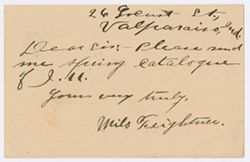 26 Locust St.,
Valparaiso, Ind.
Dear Sir:- Please send
me spring catalogue
of I.U.
Yours very truly,
Milo Feightner.